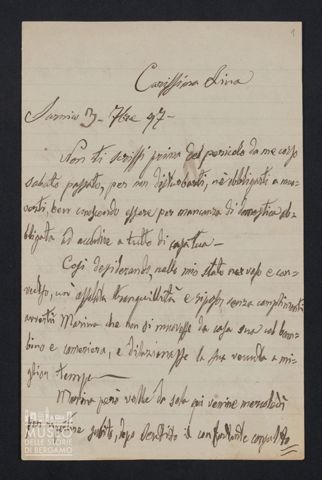 1
Carissima Lina
Sarnico 3 - 7bre 97 -
Non ti scrissi prima del pericolo da me corso
sabato passato, per non disturbarti, nè obbligarti a muo-
verti, ben conoscendo essere per mancanza di domestica ob-
bligata ad accudire a tutto di casa tua -
Così desiderando, nello mio stato nervoso e con-
vulso, un' assoluta tranquillità e riposo, senza complimenti
avvertii Marina che non si muovesse da casa sua col bam-
bino e cameriera, e dilazionasse la sua venuta a mi-
glior tempo -
Marina però volle da sola qui venire mercoledì
subito, dopo il confortante
MUSEO
DELLE STORIE
DI BERGAMO